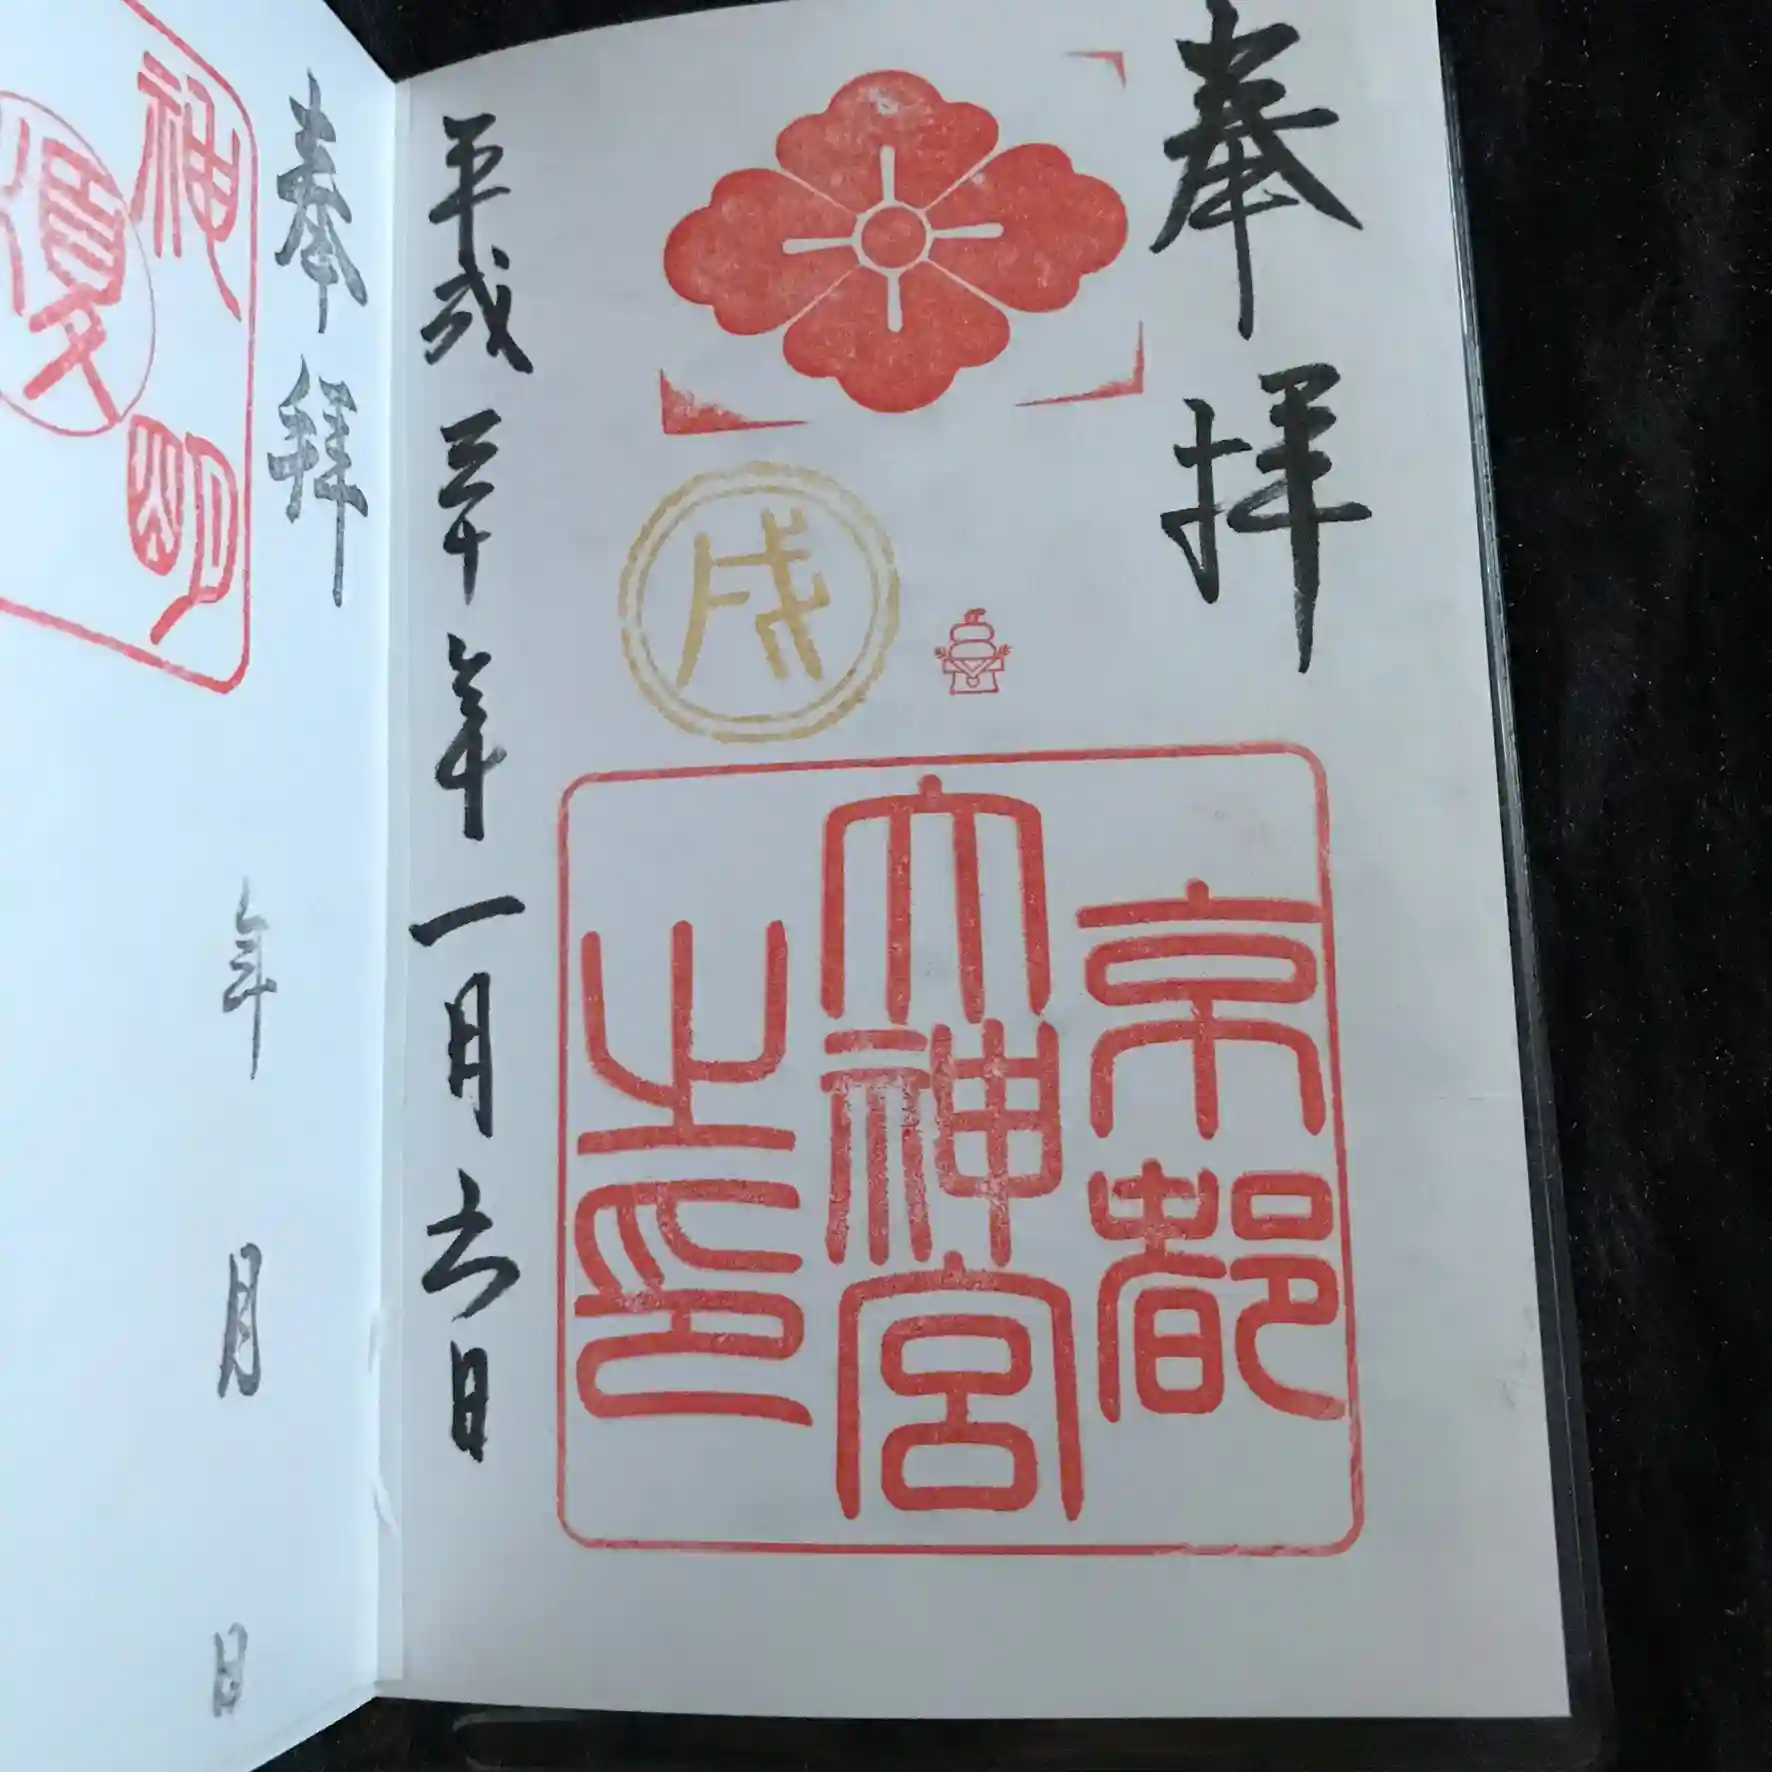 奉拝
戌
京都
大神宮
之印
平成三十年一月六日
奉拝
神明
優
年 月 日